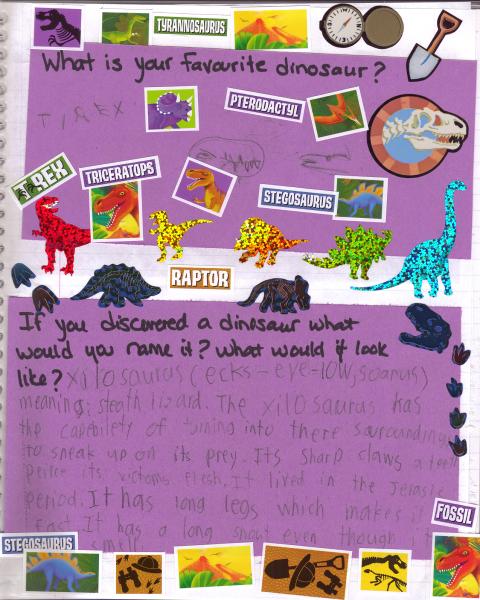 TYRANNOSAURUS
What is your favourite dinosaur?
T, REX
PTERODACTYL
T.REX
TRICERATOPS
STEGOSAURUS
RAPTOR
If you discovered a dinosaur what
would you name it? what would it look
like? xilosaurus (ecks-eye-low, soarus)
meaning: steath lizard. The xilosaurus has
the capebilety of turning into there surrounding
to sneak up on its prey. Its sharp claws a teeth
peirce its victoms flesh. It lived in the
period. It has long legs which makes it
fast. It has a long snout even though it
smell
FOSSIL
STEGOSAURUS